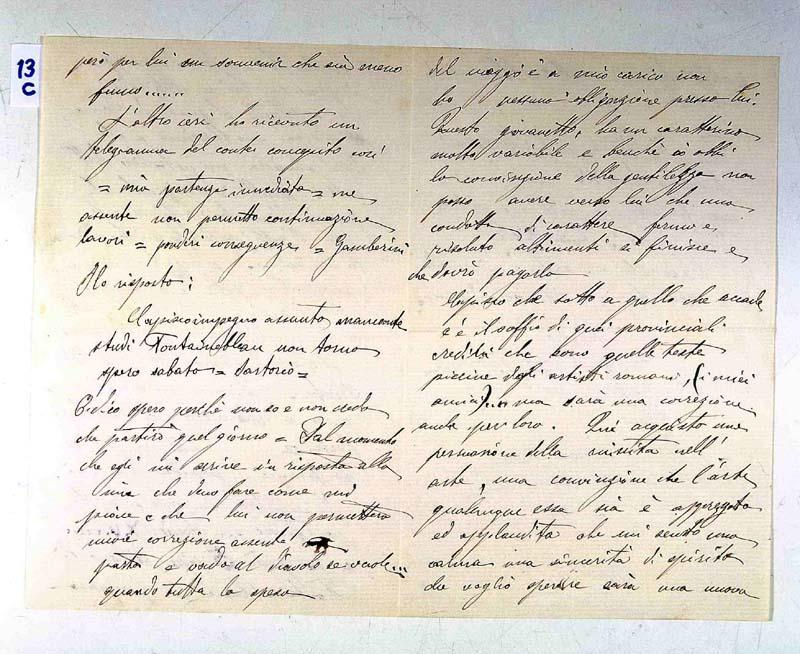 13
C
però per lui un souvenir che sia meno
fumo.....
L'altro ieri ho ricevuto un
telegramma del conte concepito così
= mia partenza immediata = me
assente non permetto continuazione
lavori = ponderi conseguenze = Gamberini
Ho risposto:
Capisco impegno assunto mancante
studi Fontainebleau non torno
spero sabato = Sartorio =
E dico spero perchè non so e non credo
che partirò quel giorno = Dal momento
che egli mi scrive in risposta alla
mia che devo fare come mi
piace e che lui non permetterà
correzione assente
parta e vada al diavolo se vuole...
quando tutta la spesa
del viaggio è a mio carico non
ho nessuna obbligazione presso lui.
Questo giovanetto, ha un caratterino
molto variabile e benchè io abbi
la convinzione della gentilezza non
posso avere verso lui che una
condotta di carattere fermo e
risoluto altrimenti si finisce e
che dovrò pagarla
Capisco che sotto a quello che accade
c'è il soffio di quei provinciali
creditri che sono quelle teste
piccine degli artisti romani, (i miei
amici)... ma sarà una correzione
anche per loro. Qui acquisto una
persuasione della riuscita nell'
arte, una convinzione che l'arte
qualunque essa sia è apprezzata
ed applaudita che mi sento una
calma una sincerità di spirito
che voglio sperare sarà una nuova